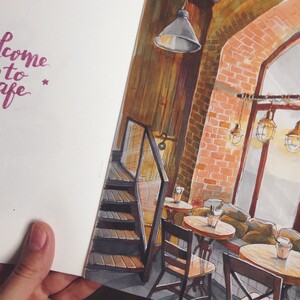 elcome
to
afe